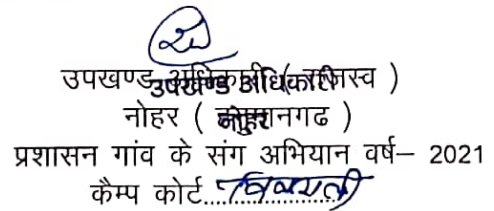 उपखण्ड अधिकारी ( राजस्व )
उपखण्ड अधिकारी
नोहर ( हनुमानगढ )
नोहर
प्रशासन गांव के संग अभियान वर्ष– 2021
कैम्प कोर्ट..................